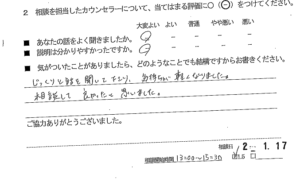 2 相談を担当したカウンセラーについて、当てはまる評価に○(⊖)をつけてください。
大変よい よい 普通 やや悪い 悪い
■ あなたの話をよく聞きましたか。 － － － － －
■ 説明は分かりやすかったですか。 － － － － －
■ 気がついたことがありましたら、どのようなことでも結構ですからお書きください。
じっくりと話を聞いて下さり、気持ちが軽くなりました。
相談して良かったと思いました。
ご協力ありがとうございました。
相談日 2 1. 17
13:00～15:30